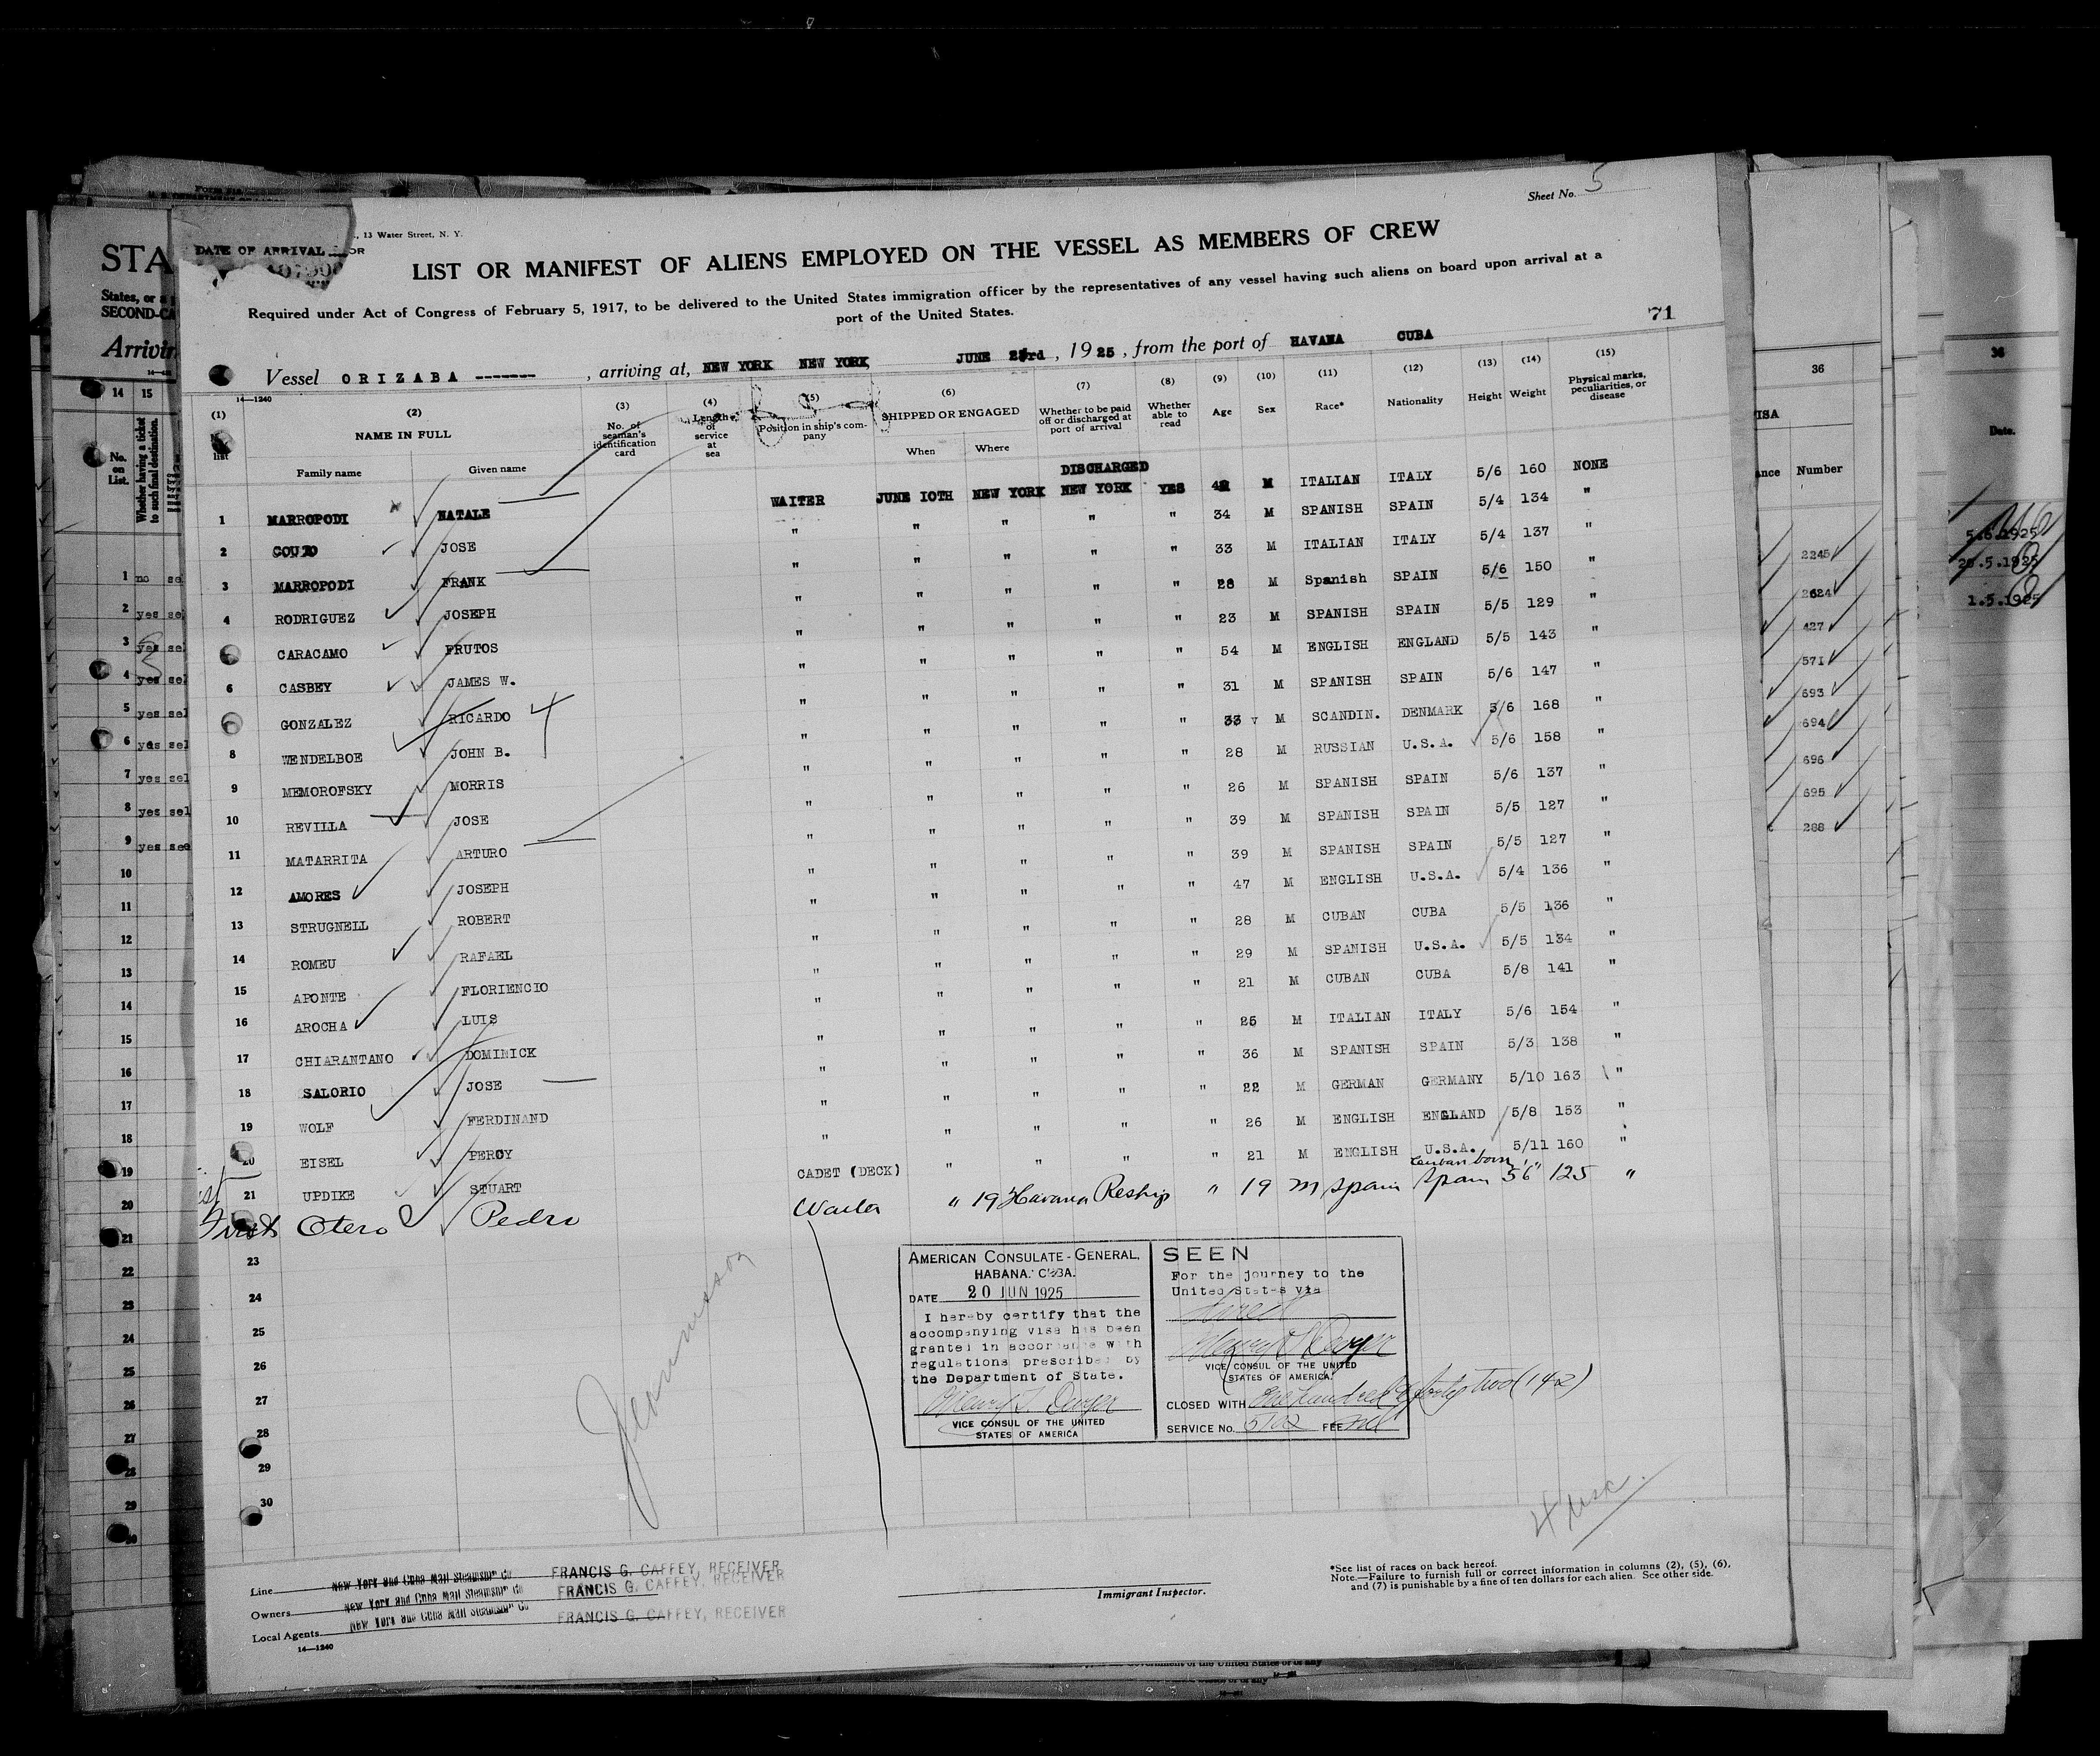 Sheet No. 5
, 13 Water Street, N. Y.
DATE OF ARRIVAL
LIST OR MANIFEST OF ALIENS EMPLOYED ON THE VESSEL AS MEMBERS OF CREW
Required under Act of Congress of February 5, 1917, to be delivered to the United States immigration officer by the representatives of any vessel having such aliens on board upon arrival at a
port of the United States.
71
Vessel ORIZABA -------, arriving at, NEW YORK NEW YORK JUNE 23rd, 1925, from the port of HAVANA CUBA
14—1240
(1) (2) (3) (4) (5) (6) (7) (8) (9) (10) (11) (12) (13) (14) (15)
list NAME IN FULL No. of seaman's identification card Length of service at sea Position in ship's company SHIPPED OR ENGAGED Whether to be paid off or discharged at port of arrival Whether able to read Age Sex Race* Nationality Height Weight Physical marks, peculiarities, or disease
Family name Given name When Where
DISCHARGED
1 MARROPODI NATALE WAITER JUNE 10TH NEW YORK NEW YORK YES 42 M ITALIAN ITALY 5/6 160 NONE
2 COUTO JOSE " " " " " 34 M SPANISH SPAIN 5/4 134 "
3 MARROPODI FRANK " " " " " 33 M ITALIAN ITALY 5/4 137 "
4 RODRIGUEZ JOSEPH " " " " " 28 M Spanish SPAIN 5/6 150 "
CARACAMO FRUTOS " " " " " 23 M SPANISH SPAIN 5/5 129 "
6 CASBEY JAMES W. " " " " " 54 M ENGLISH ENGLAND 5/5 143 "
GONZALEZ RICARDO " " " " " 31 M SPANISH SPAIN 5/6 147 "
8 WENDELBOE JOHN B. " " " " " 33 M SCANDIN. DENMARK 5/6 168 "
9 MEMOROFSKY MORRIS " " " " " 28 M RUSSIAN U.S.A. 5/6 158 "
10 REVILLA JOSE " " " " " 26 M SPANISH SPAIN 5/6 137 "
11 MATARRITA ARTURO " " " " " 39 M SPANISH SPAIN 5/5 127 "
12 AMORES JOSEPH " " " " " 39 M SPANISH SPAIN 5/5 127 "
13 STRUGNELL ROBERT " " " " " 47 M ENGLISH U.S.A. 5/4 136 "
14 ROMEU RAFAEL " " " " " 28 M CUBAN CUBA 5/5 136 "
15 APONTE FLORIENCIO " " " " " 29 M SPANISH U.S.A. 5/5 134 "
16 AROCHA LUIS " " " " " 21 M CUBAN CUBA 5/8 141 "
17 CHIARANTANO DOMINICK " " " " " 25 M ITALIAN ITALY 5/6 154 "
18 SALORIO JOSE " " " " " 36 M SPANISH SPAIN 5/3 138 "
19 WOLF FERDINAND " " " " " 22 M GERMAN GERMANY 5/10 163 "
20 EISEL PERCY " " " " " 26 M ENGLISH ENGLAND 5/8 153 "
21 UPDIKE STUART CADET (DECK) " " " " 21 M ENGLISH U.S.A. 5/11 160 "
Cuban born
First Otero Pedro Waiter " 19 Havana Reship " 19 m Spain Spain 5'6" 125 "
23
24
25
26
27
28
29
30
AMERICAN CONSULATE-GENERAL,
HABANA. CUBA.
DATE 20 JUN 1925
I hereby certify that the
accompanying visa has been
granted in accordance with
regulations prescribed by
the Department of State.
Henry T. Dwyer
VICE CONSUL OF THE UNITED
STATES OF AMERICA
SEEN
For the journey to the
United States via
Direct
Henry T. Dwyer
VICE CONSUL OF THE UNITED
STATES OF AMERICA.
CLOSED WITH One hundred & forty two (142)
SERVICE No. 5102 FEE nil
4 usc.
Line New York and Cuba Mail Steamship Co FRANCIS G. CAFFEY, RECEIVER
Owners New York and Cuba Mail Steamship Co FRANCIS G. CAFFEY, RECEIVER
Local Agents New York and Cuba Mail Steamship Co FRANCIS G. CAFFEY, RECEIVER
14—1240
Immigrant Inspector.
*See list of races on back hereof.
Note.—Failure to furnish full or correct information in columns (2), (5), (6),
and (7) is punishable by a fine of ten dollars for each alien. See other side.
STA
States, or a
SECOND-CA
Arrivin
14 15
No. on List.
Whether having a ticket to such final destination.
1 no
2 yes
3 yes
4 yes
5 yes sel
6 yes sel
7 yes sel
8 yes sel
9 yes
10
11
12
13
14
15
16
17
18
19
20
21
22
23
24
25
26
27
28
29
36
Number
2245
2624
427
571
693
694
696
695
288
36
Date.
5.6.1925
1.5.1925